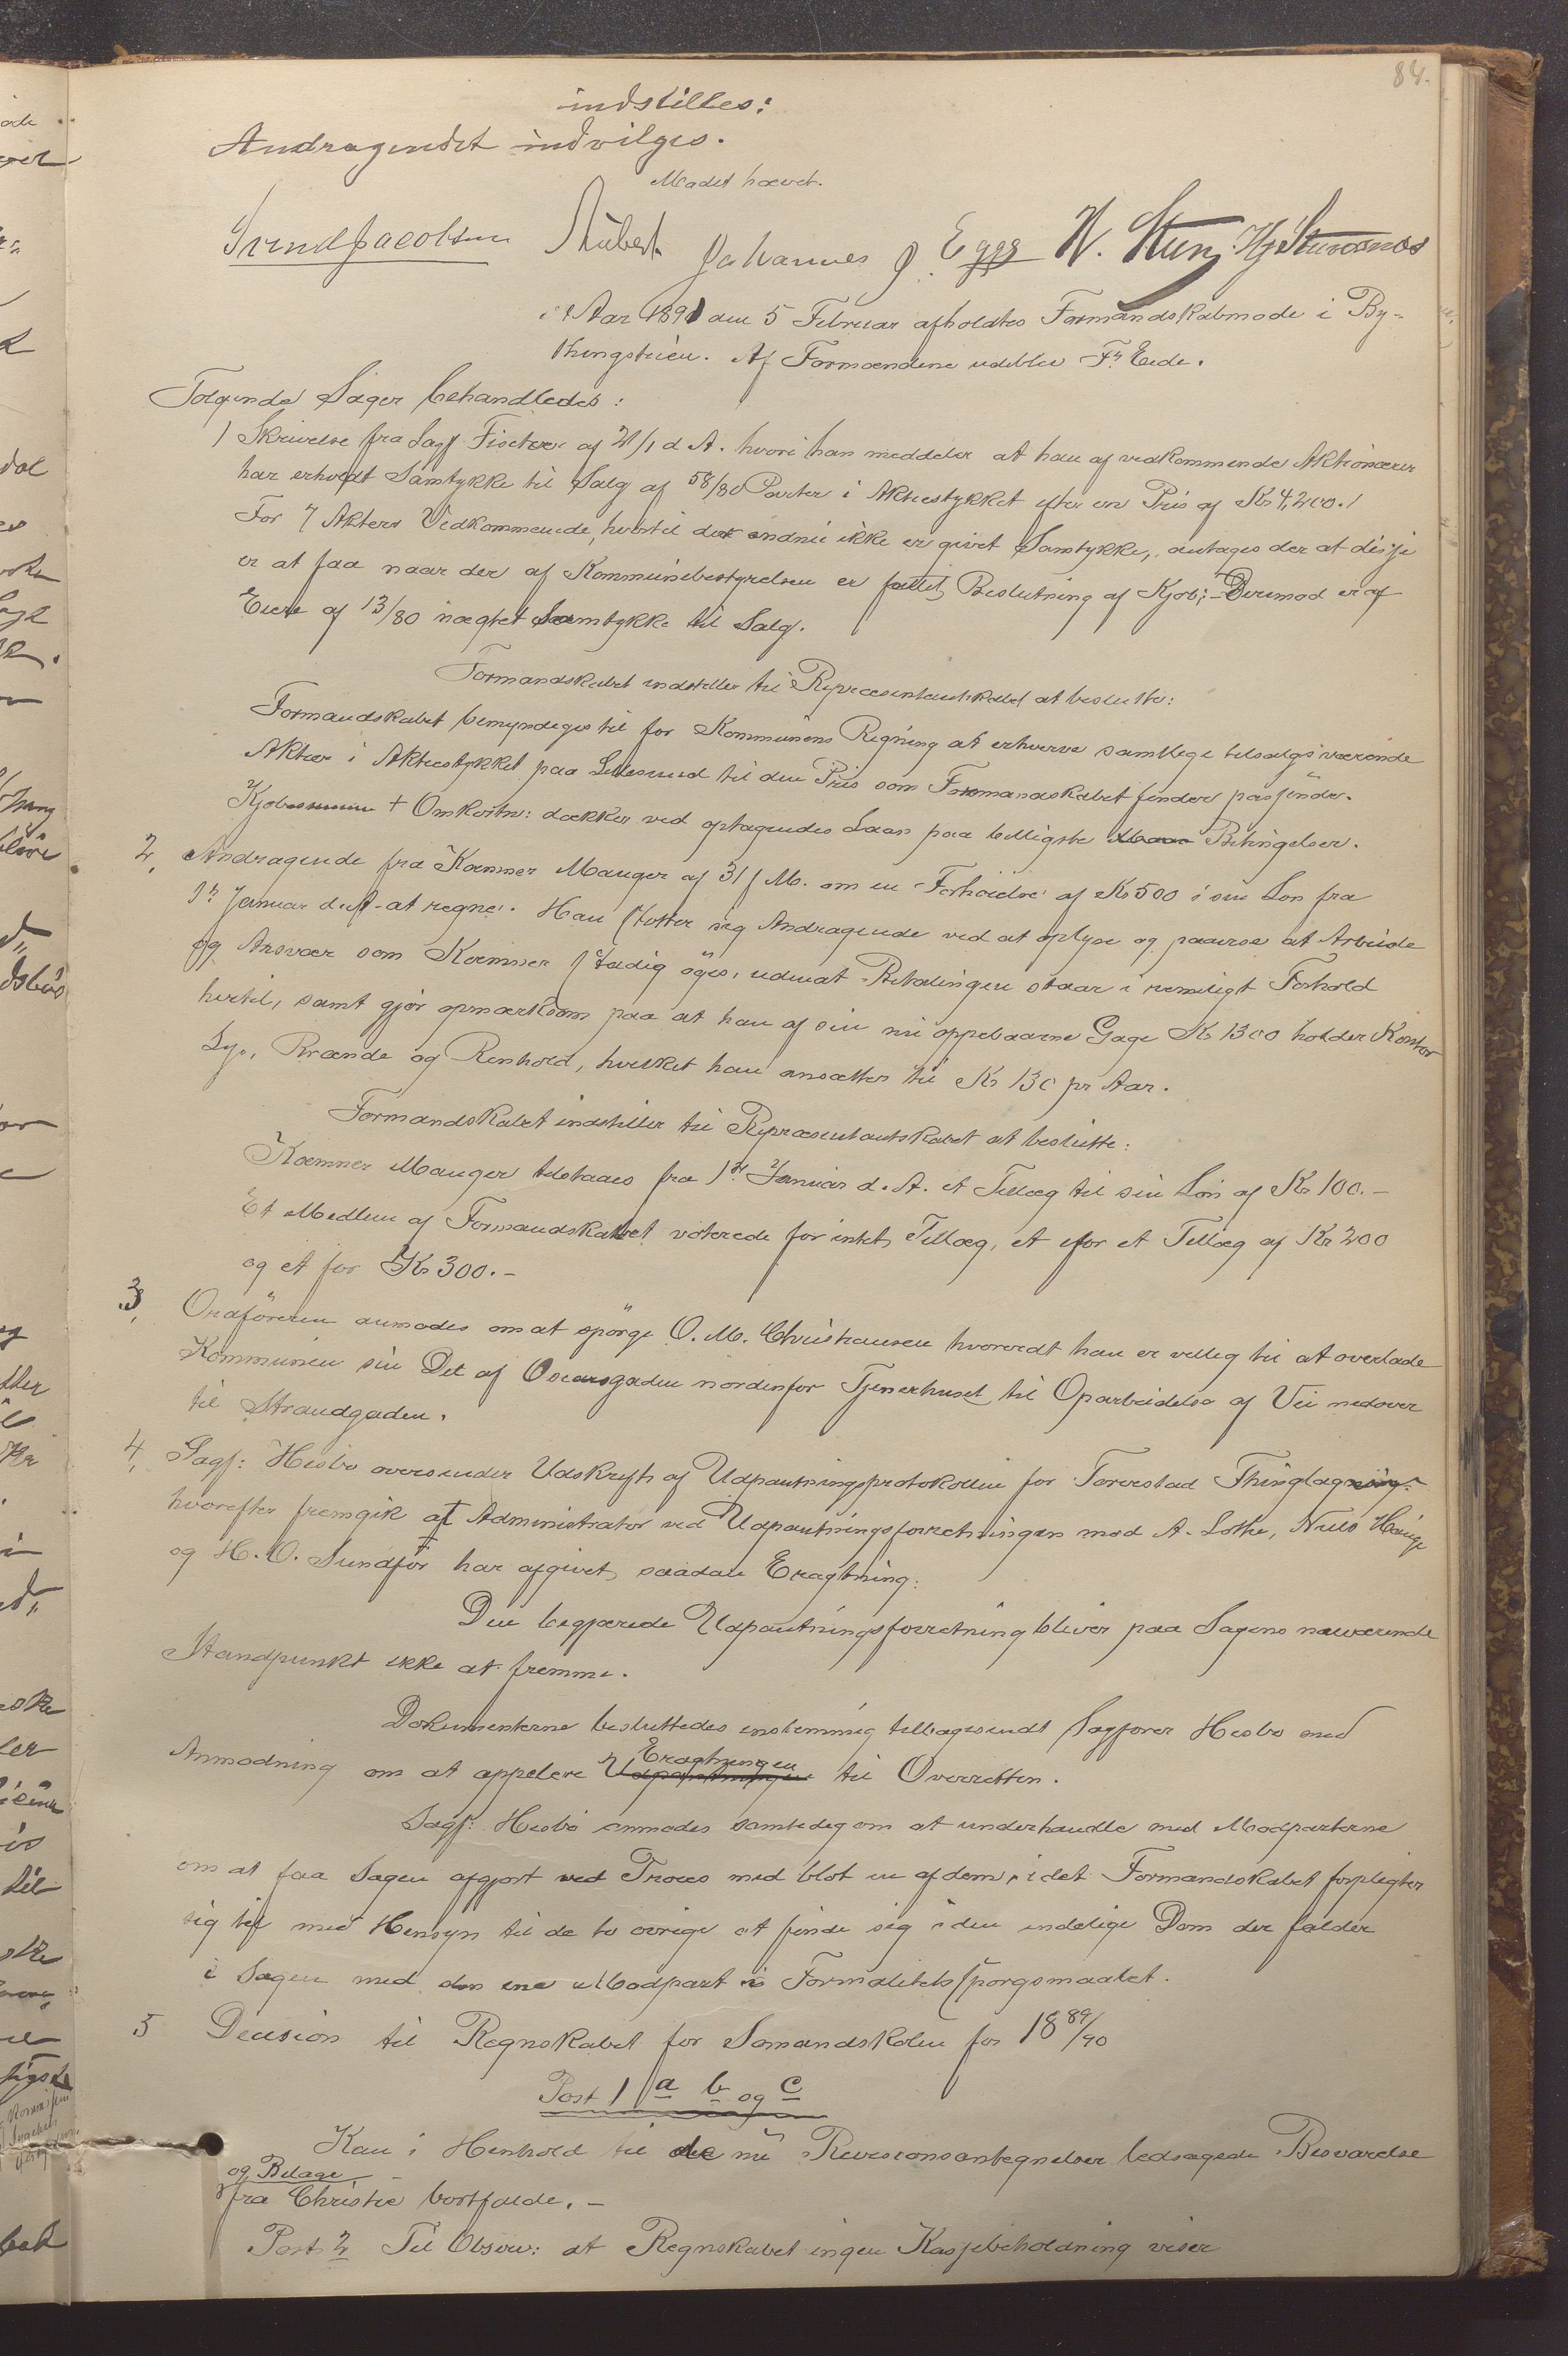 84.
indstilles:
Andragendet indvilges.
Mødet hævet.
Svend Jacobsen Stubert Johannes J. Egge W. Stung
Aar 1891 den 5 Februar afholdtes Formandskabmøde i By-
thingstuen. Af Formændene udeblev Fr. Eide.
Følgende Sager behandledes:
1 Skrivelse fra Sagf Fischer af 21/1 d A. hvori han meddeler at han af vedkommende Aktionærer
har erholdt Samtykke til Salg af 58/80 Parter i Aktiestykket efter en Pris af Kr 4,200./
For 7 Akters Vedkommende, hvortil der endnu ikke er givet Samtykke, antages der at disse
er at faa naar der af Kommunebestyrelsen er fattet Beslutning af Kjøb; - Derimod er af
Eiere af 13/80 nægtet Samtykke til Salg.
Formandskabet indstiller til Repræsentantskabet at beslutte:
Formandskabet bemyndiges til for Kommunens Regning at erhverve samtlige tilsalgsværende
Aktier i Aktiestykket paa til den Pris som Formandskabet finder passende.
Kjøbesummen + Omkostn: dækkes ved optagendes Laan paa billigste Betingelser.
2, Andragende fra Kæmner Mauger af 31 f M. om en Forhøielse af Kr 500 i sin Løn fra
1ste Januar d. A. at regne. Han støtter sig Andragende ved at oplyse og paavise at Arbeide
og Ansvar som Kæmner stadig øges, udenat Betalingen staar i rimeligt Forhold
hertil, samt gjør opmærksom paa at han af sin nu oppebaarne Gage Kr 1300 holder Kontor
Lys, Brænde og Renhold, hvilket han ansætter til Kr 130 pr Aar.
Formandskabet indstiller til Repræsentantskabet at beslutte:
Kæmner Mauger tilstaaes fra 1ste Januar d. A. et Tillæg til sin Løn af Kr 100.-
Et Medlem af Formandskabet voterede for intet Tillæg, et for et Tillæg af Kr 200
og et for Kr 300.-
3, Ordføreren anmodes om at spørge O. M. Christiansen hvorvidt han er villig til at overlade
Kommunen sin Del af Oscarsgaden nordenfor Tjenerhuset til Oparbeidelse af Vei nedover
til Strandgaden.
4, Sagf: Hesbø oversender Udskrift af Udpantningsprotokollen for Torvestad Thinglag
hvorefter fremgik at Administrator ved Udpantningsforretningen mod A. Lothe, Niels Hauge
og H. O. Sundfør har afgivet saadan Eragtning:
Den begjærede Udpantningsforretning bliver paa Sagens nuværende
Standpunkt ikke at fremme.
Dokumenterne besluttedes enstemmig tilbagesendt Sagfører Hesbø med
Anmodning om at appelere Eragtningen til Overretten.
Sagf: Hesbø anmodes samtidig om at underhandle med Modparterne
om at faa Sagen afgjort ved Proces med blot en af dem, idet Formandskabet forpligter
sig til med Hensyn til de to øvrige at finde sig i den endelige Dom der falder
i Sagen med den ene Modpart i Formalitetsspørgsmaalet.
5 Decision til Regnskabet for Sømandskolen for 1889/90
Post 1 a b og c
Kan i Henhold til de nu Revisionsantegnelser ledsagede Besvarelse
og Bilage
fra Christie bortfalde. -
Post 2 Til Observ: at Regnskabet ingen Kassebeholdning viser